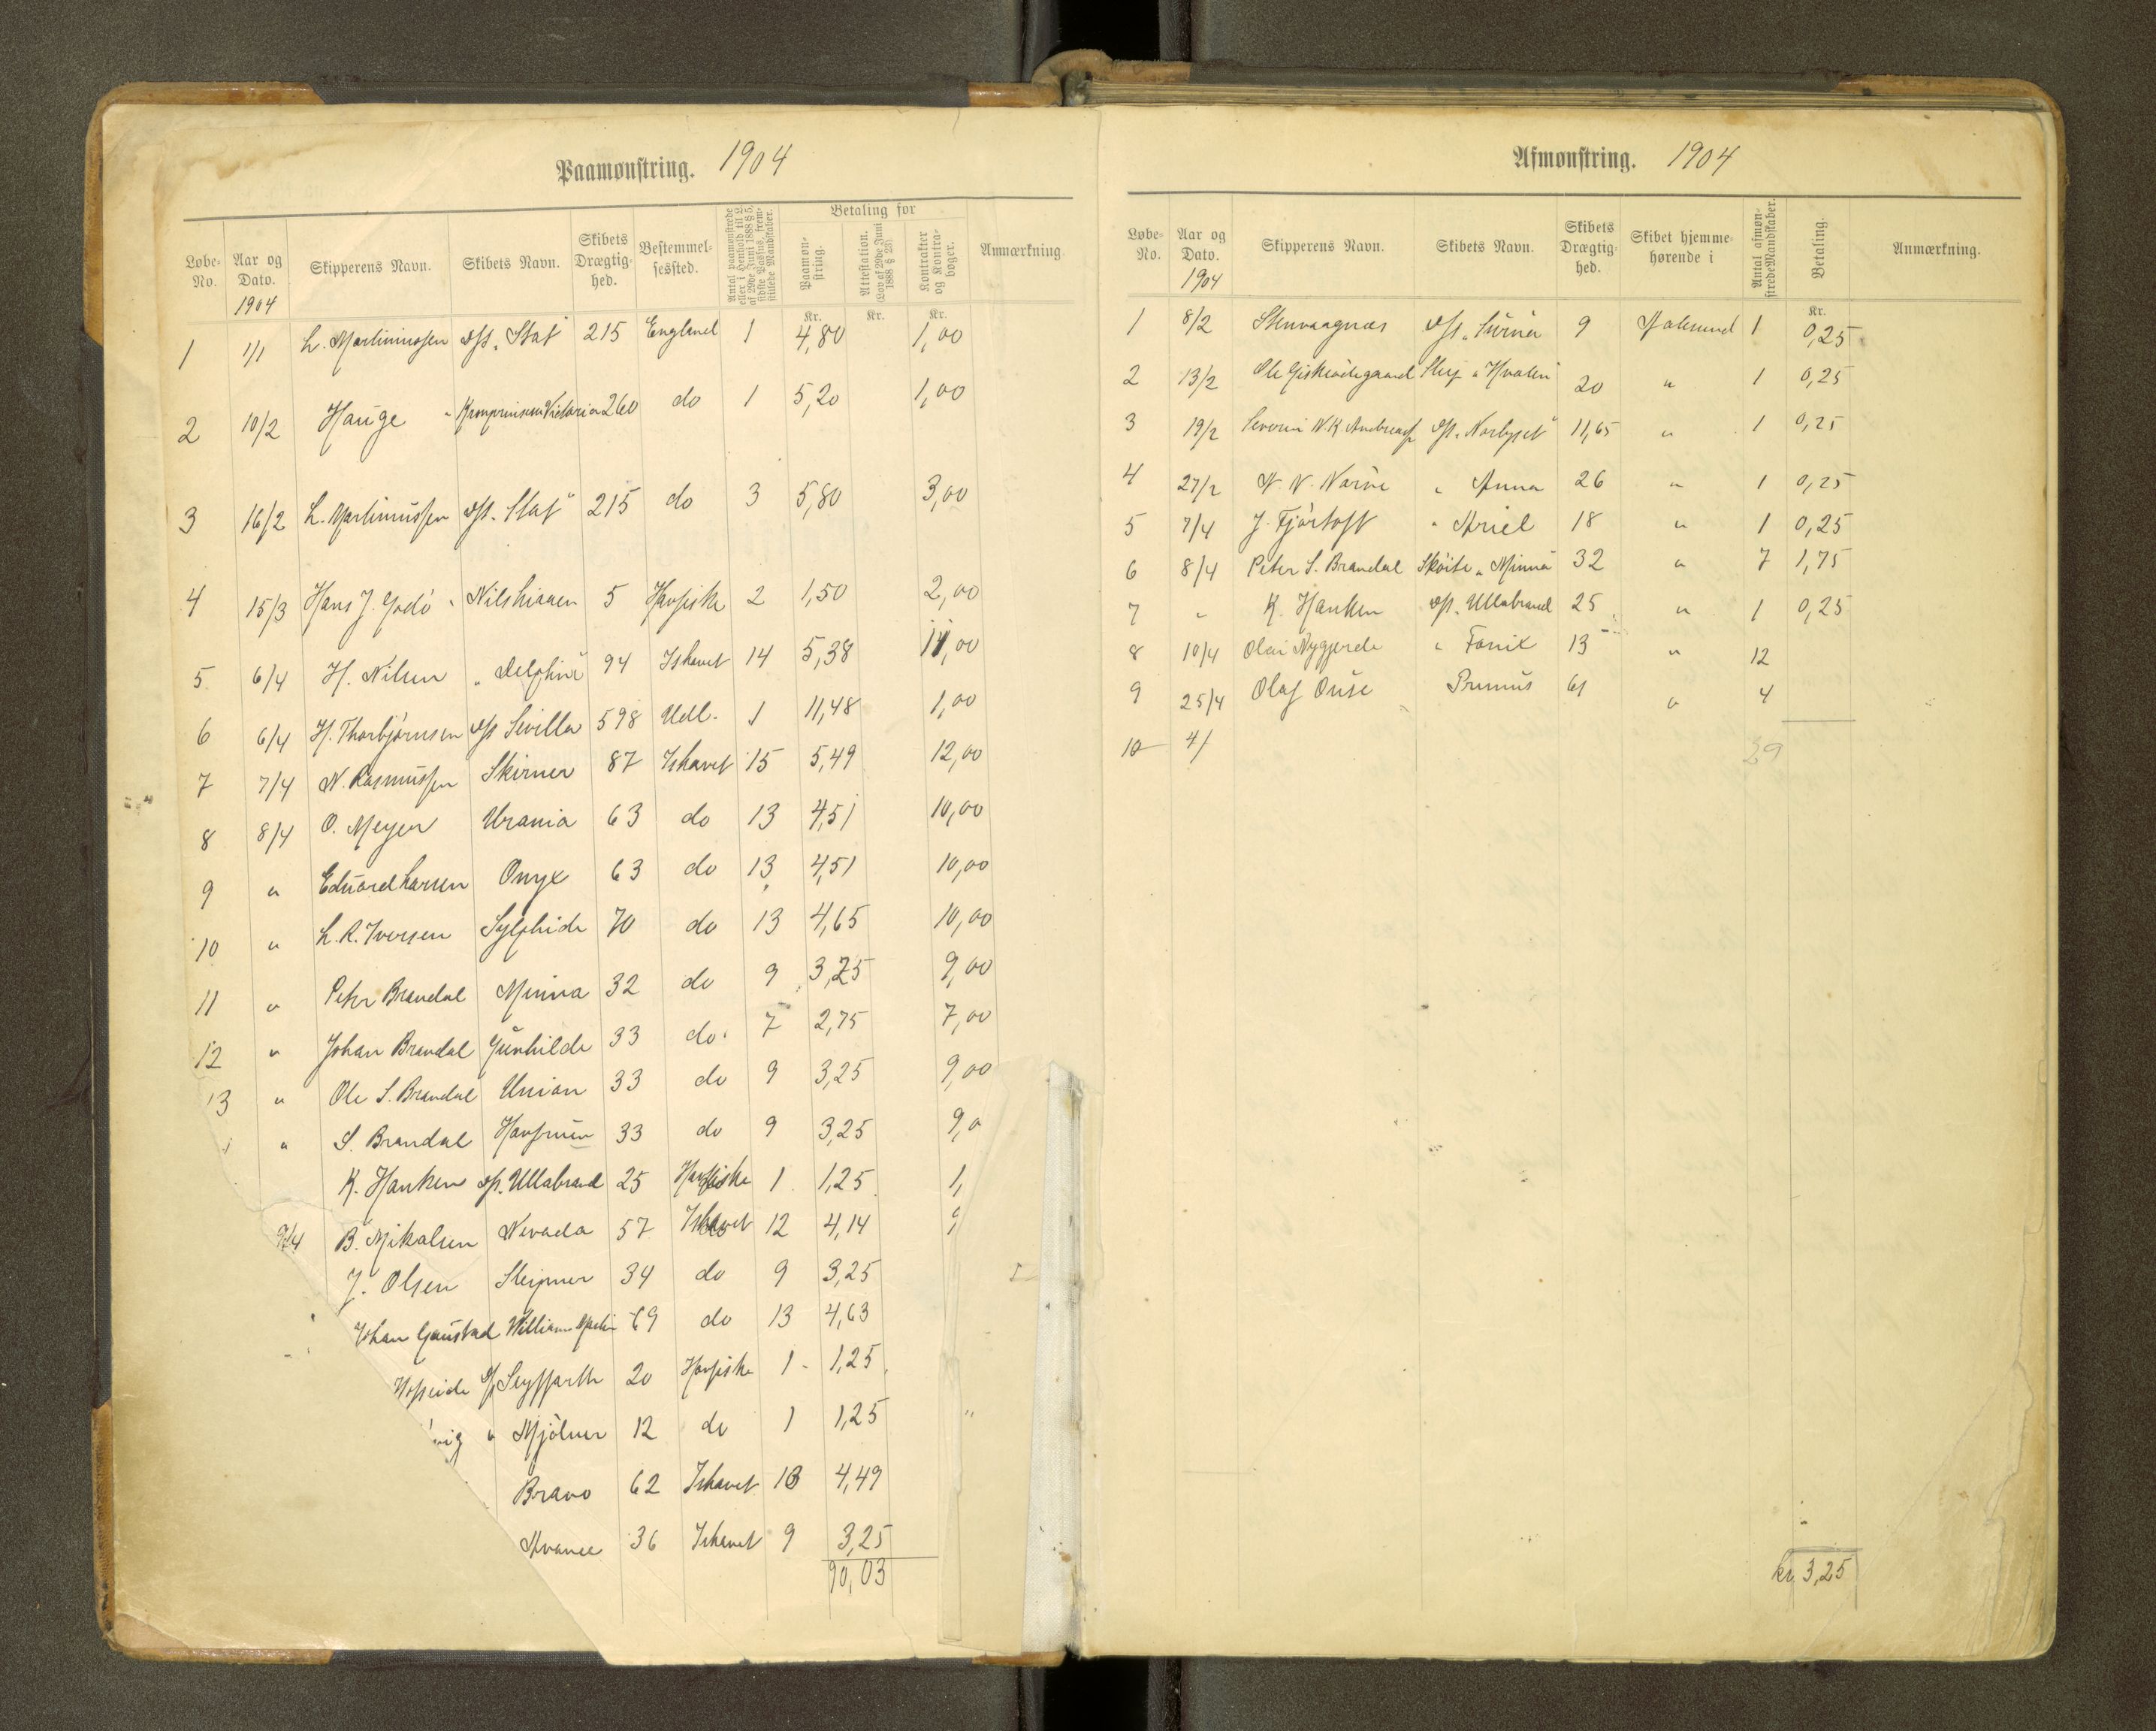 Paamønstring. 1904
Løbe-No. Aar og Dato. Skipperens Navn. Skibets Navn. Skibets Drægtighed. Bestemmelsessted. Antal paamønstrede eller i Henhold til L. af 29de Juni 1888 § 5, sidste Passus, fremstillede Mandskaber. Betaling for Paamønstring. Attestation. (Lov af 29de Juni 1888 § 23). Kontrakter og Kontrabøger. Anmærkning.
1904 Kr. Kr. Kr.
1 1/1 L. Martinussen D/S. „Stat" 215 England 1 4,80 1,00
2 10/2 Hauge " Kronprinsesse Victoria 260 do 1 5,20 1,00
3 16/2 L. Martinussen D/S. „Stat" 215 do 3 5,80 3,00
4 15/3 Hans J. Godø " Nilshiaaen 5 Havfiske 2 1,50 2,00
5 6/4 H. Nilsen „Delphin" 94 Ishavet 14 5,38 11,00
6 6/4 H. Thorbjørnsen D/S Sevilla 598 Udl. 1 11,48 1,00
7 7/4 N. Rasmussen Skirner 87 Ishavet 15 5,49 12,00
8 8/4 O. Meyer Urania 63 do 13 4,51 10,00
9 " Edvard Larsen Onyx 63 do 13 4,51 10,00
10 " L. R. Iversen Sylphide 70 do 13 4,65 10,00
11 " Peter Brandal Minna 32 do 9 3,25 9,00
12 " Johan Brandal Gunhilde 33 do 7 2,75 7,00
13 " Ole S. Brandal Union 33 do 9 3,25 9,00
" S. Brandal Havfruen 33 do 9 3,25 9,0
K. Hanken D/S. Ullabrand 25 Havfiske 1 1,25 1,
9/4 B. Mikalsen Nevada 57 Ishavet 12 4,14
J. Olsen Sleipner 34 do 9 3,25
Johan Gaustad William Martin 69 do 13 4,63
D/S Seyffarth 20 Havfiske 1 - 1,25
vig " Mjölner 12 do 1 1,25
Bravo 62 Ishavet 13 4,49
Avance 36 Ishavet 9 3,25
90,03
Afmønstring. 1904
Løbe-No. Aar og Dato. Skipperens Navn. Skibets Navn. Skibets Drægtighed. Skibet hjemmehørende i Antal afmønstrede Mandskaber. Betaling. Anmærkning.
1904 Kr.
1 8/2 Stenvaagnæs D/S. „Surna" 9 Aalesund 1 0,25
2 13/2 Ole Giskeødegaard „Hvalen" 20 " 1 0,25
3 19/2 Severin N. K. D/S. 11,65 " 1 0,25
4 27/2 N. N. Narve " Anna 26 " 1 0,25
5 7/4 J. Fjørtoft " Ariel 18 " 1 0,25
6 8/4 Peter S. Brandal Skøite „Minna" 32 " 7 1,75
7 " K. Hanken D/S. Ullabrand 25 " 1 0,25
8 10/4 Olai Nygjerde " Fønix 13 " 12
9 25/4 Olaf Ouse Primus 61 " 4
10 4/ 29
kr. 3,25